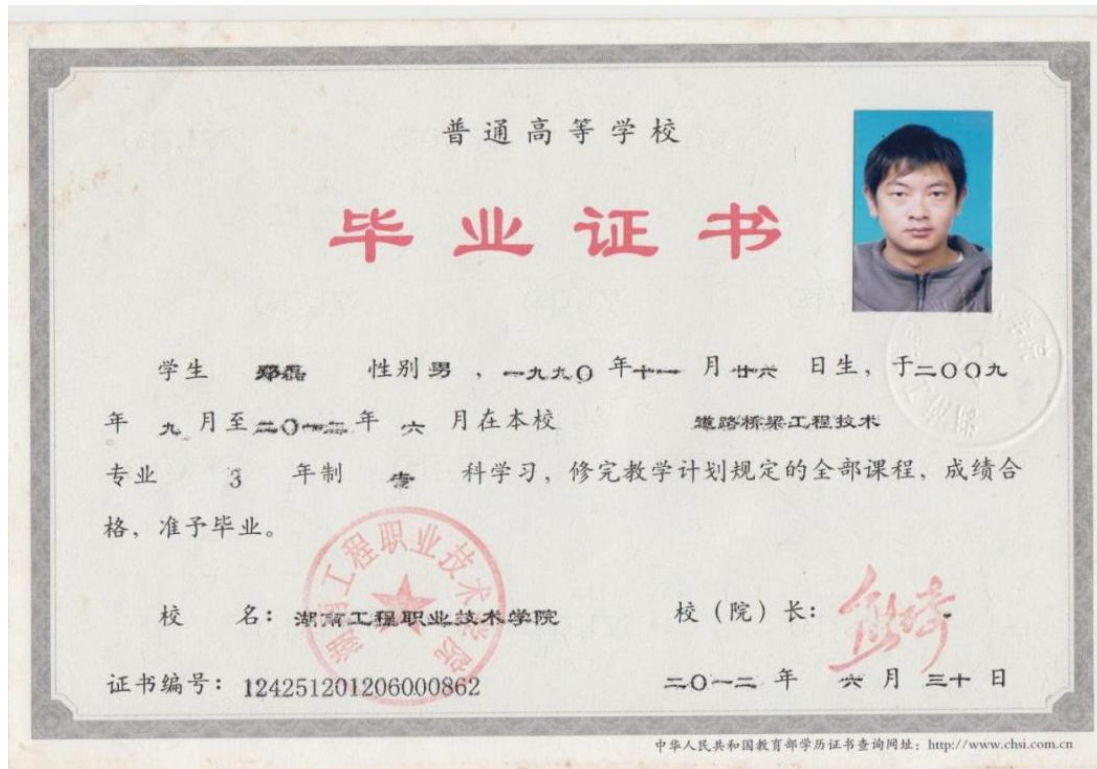 普通高等学校
毕业证书
学生 郑磊 性别 男 ，一九九〇 年 十一 月 廿六 日生，于二〇〇九
年 九 月至 二〇一二 年 六 月在本校 道路桥梁工程技术
专业 3 年制 专 科学习，修完教学计划规定的全部课程，成绩合
格，准予毕业。
湖南工程职业技术学院
校 名：湖南工程职业技术学院 校（院）长：
证书编号：124251201206000862 二〇一二 年 六 月 三十 日
中华人民共和国教育部学历证书查询网址：http://www.chsi.com.cn